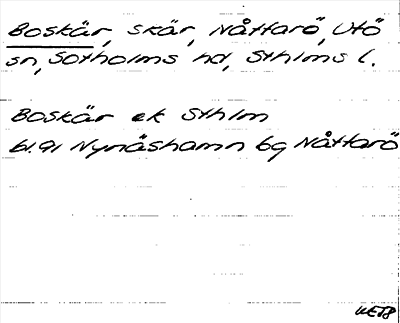 Boskär, skär, Nåttarö, Utö
sn, Sotholms hd, Sthlms l.
Boskär ek Sthlm
bl. 91 Nynäshamn bg Nåttarö